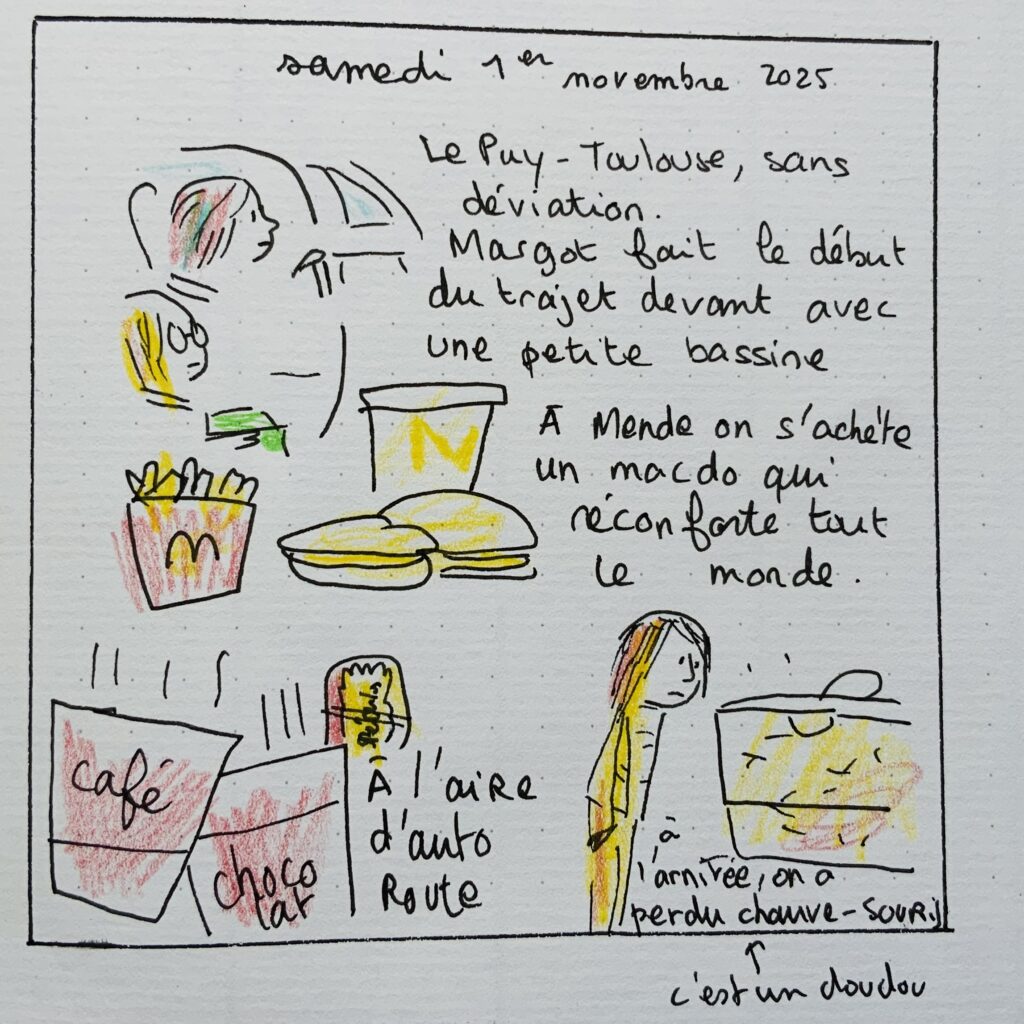 samedi 1er novembre 2025
Le Puy - Toulouse, sans
déviation.
Margot fait le début
du trajet devant avec
une petite bassine
À Mende on s'achète
un macdo qui
réconforte tout
le monde.
café
choco
lat
À l'aire
d'auto
Route
à
l'arrivée, on a
perdu chauve-souris
c'est un doudou